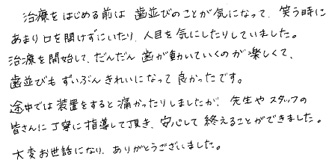 治療をはじめる前は 歯並びのことが気になって、笑う時に
あまり口を開けずにいたり、人目を気にしたりしていました。
治療を開始して、だんだん 歯が動いていくのが楽しくて、
歯並びも ずいぶん きれいになって 良かったです。
途中では 装置をすると痛かったりしましたが、先生や スタッフの
皆さんに 丁寧に指導して頂き、安心して 終えることができました。
大変お世話になり、ありがとうございました。